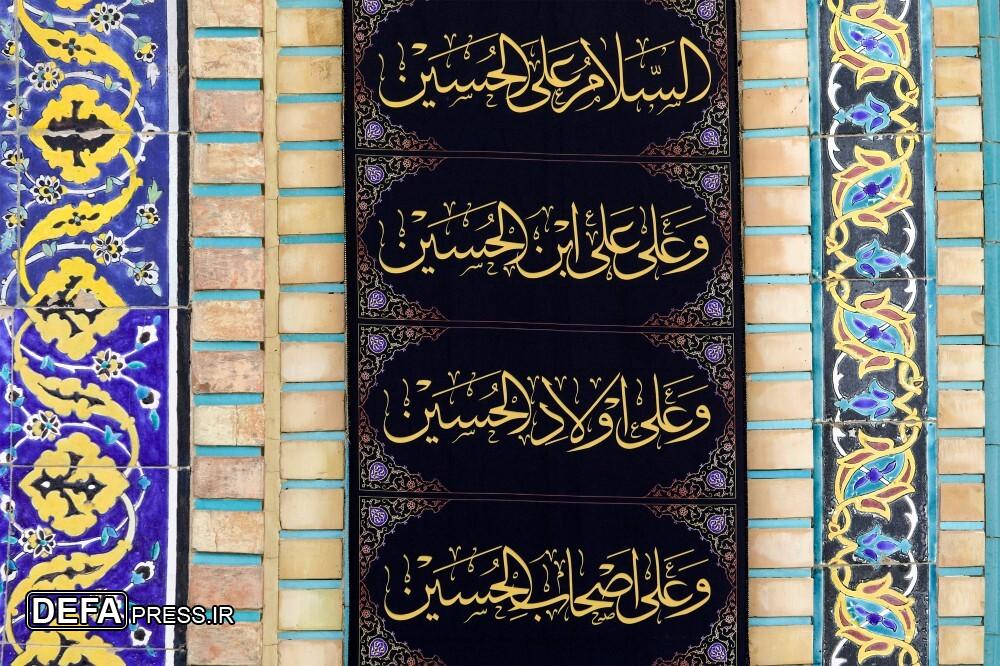 السّلامُ عَلَی الحُسَین
وَعَلی عَلی ابنِ الحُسَین
وَعَلی اَولادِ الحُسَین
وَعَلی اَصحابِ الحُسَین
DEFAPRESS.IR